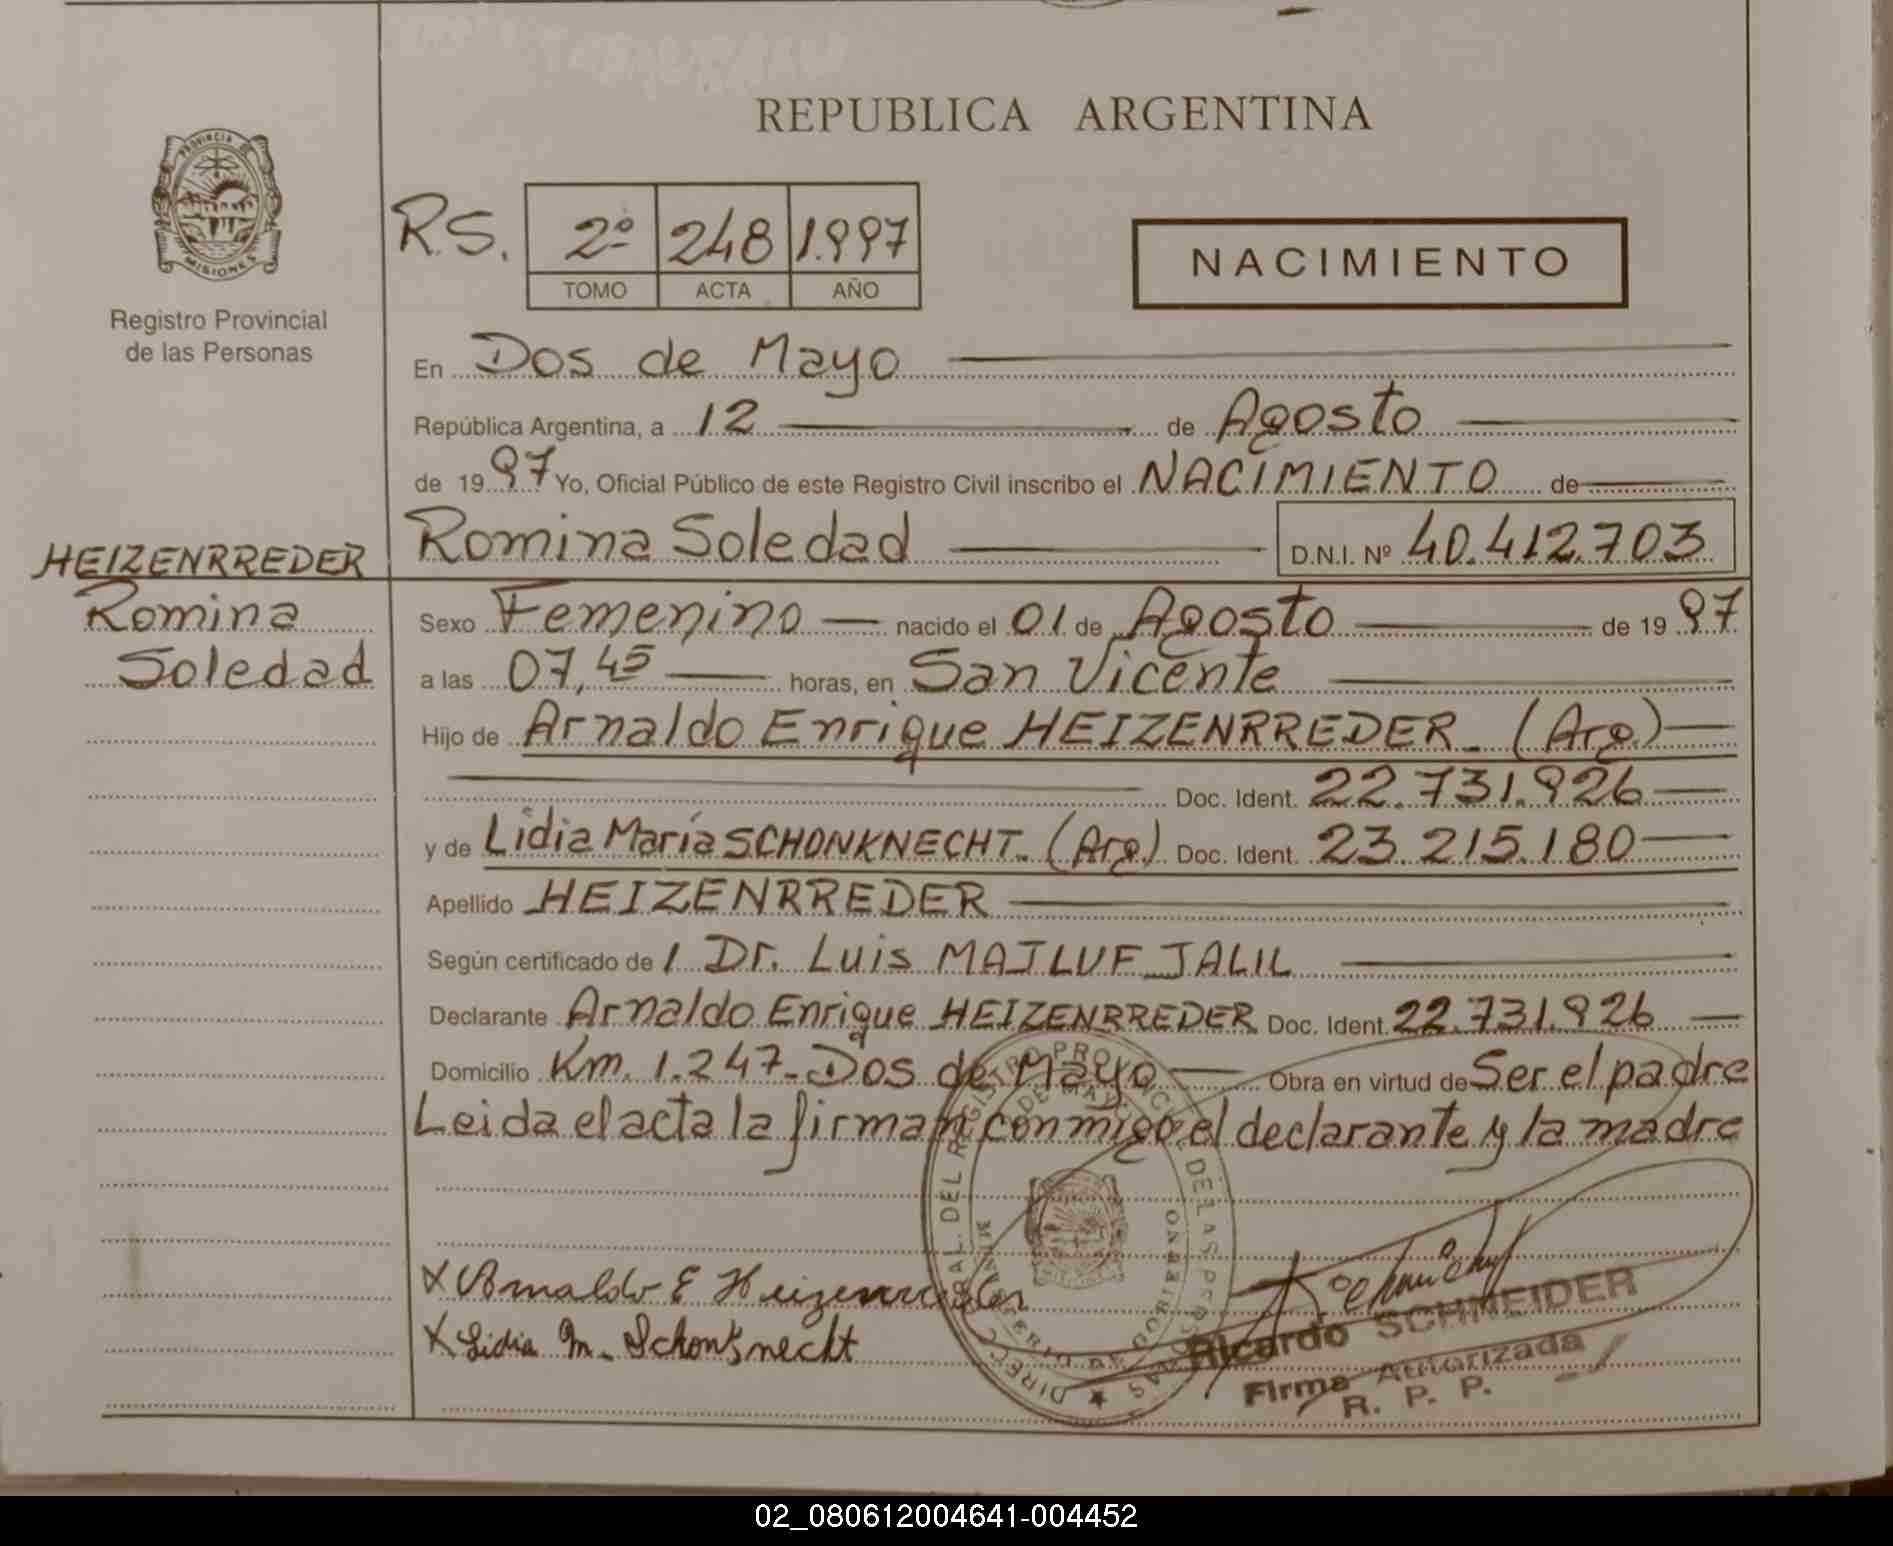 REPUBLICA ARGENTINA
PROVINCIA DE MISIONES
Registro Provincial
de las Personas
R.S. 2º 248 1.997
TOMO ACTA AÑO
NACIMIENTO
En Dos de Mayo
República Argentina, a 12 de Agosto
de 1997 Yo, Oficial Público de este Registro Civil inscribo el NACIMIENTO de
Romina Soledad D.N.I. Nº 40.412.703
HEIZENRREDER
Romina
Soledad
Sexo Femenino nacido el 01 de Agosto de 1997
a las 07,45 horas, en San Vicente
Hijo de Arnaldo Enrique HEIZENRREDER. (Arg.)
Doc. Ident. 22.731.926
y de Lidia María SCHONKNECHT. (Arg.) Doc. Ident. 23.215.180
Apellido HEIZENRREDER
Según certificado de / Dr. Luis MAJLUF JALIL
Declarante Arnaldo Enrique HEIZENRREDER Doc. Ident. 22.731.926
Domicilio Km. 1.247- Dos de Mayo Obra en virtud de Ser el padre
Leida el acta la firman conmigo el declarante y la madre
X Arnaldo E Heizenrreder
X Lidia M. Schonknecht
Ricardo SCHNEIDER
Firma Autorizada
R. P. P.
02_080612004641-004452